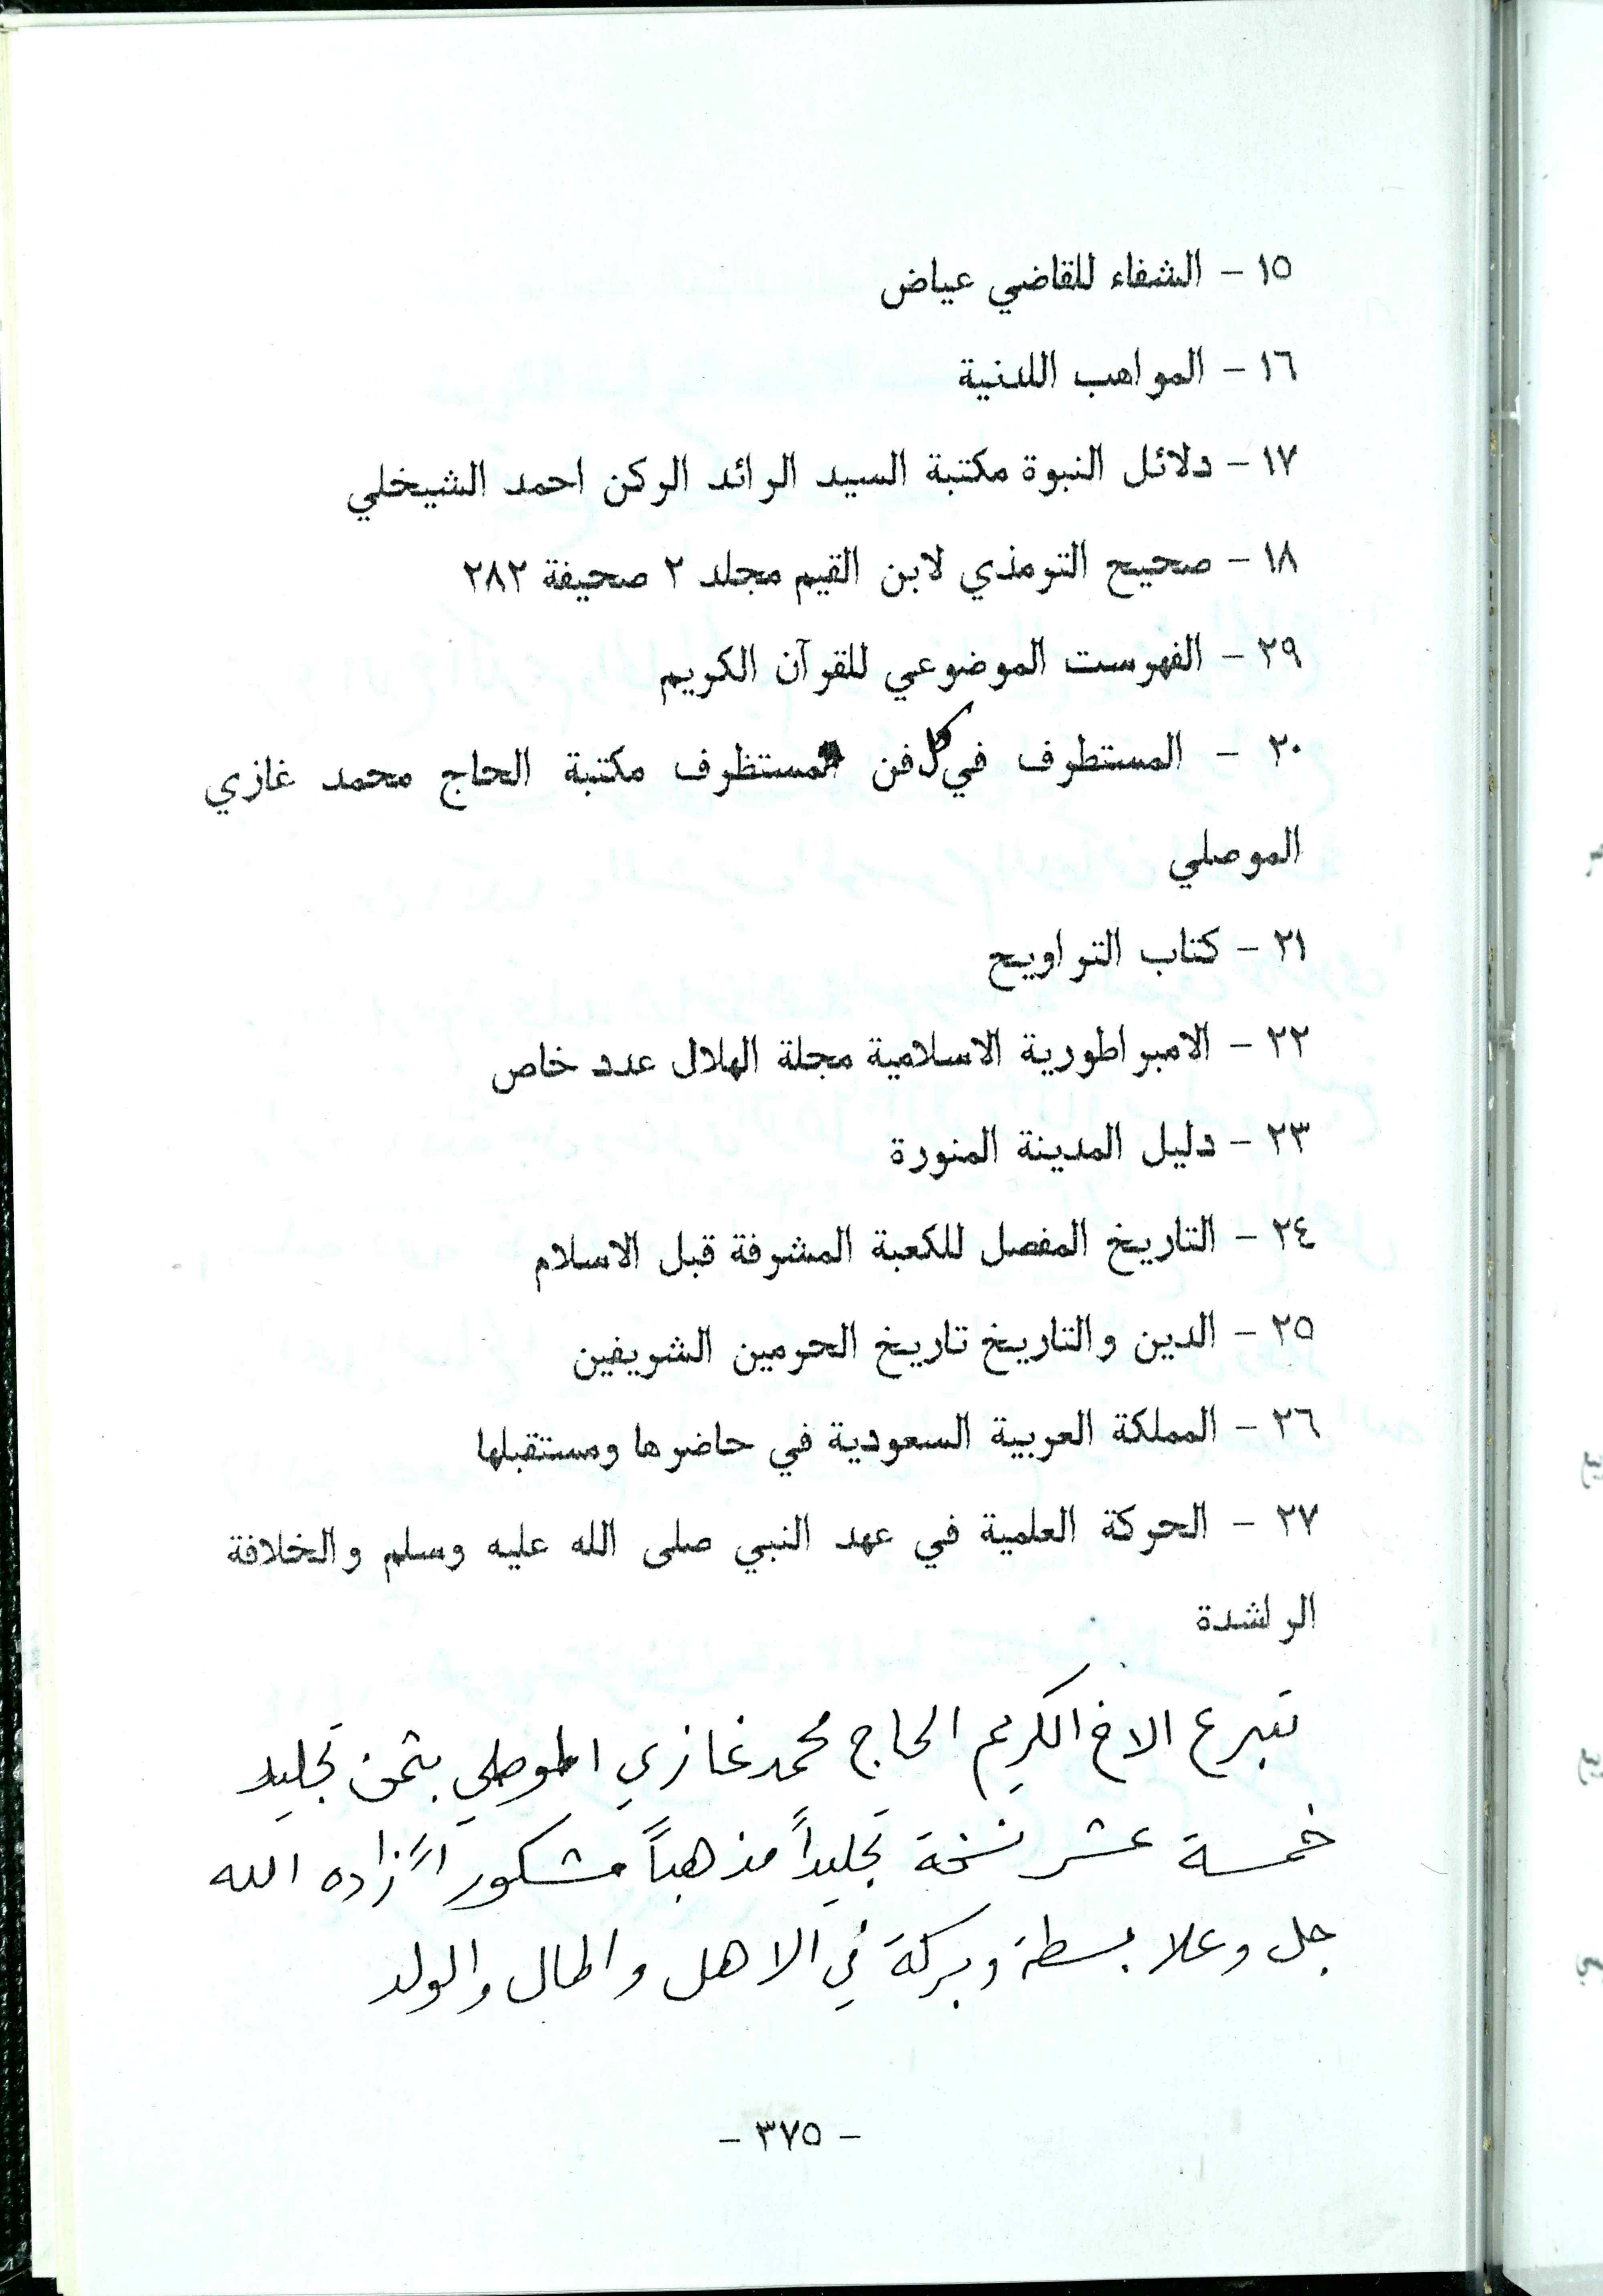 ١٥ - الشفاء للقاضي عياض
١٦ - المواهب اللدنية
١٧ - دلائل النبوة مكتبة السيد الرائد الركن احمد الشيخلي
١٨ - صحيح الترمذي لابن القيم مجلد ٢ صحيفة ٢٨٢
٢٩ - الفهرست الموضوعي للقرآن الكريم
٢٠ - المستطرف في كل فن مستظرف مكتبة الحاج محمد غازي
الموصلي
٢١ - كتاب التراويح
٢٢ - الامبراطورية الاسلامية مجلة الهلال عدد خاص
٢٣ - دليل المدينة المنورة
٢٤ - التاريخ المفصل للكعبة المشرفة قبل الاسلام
٢٥ - الدين والتاريخ تاريخ الحرمين الشريفين
٢٦ - المملكة العربية السعودية في حاضرها ومستقبلها
٢٧ - الحركة العلمية في عهد النبي صلى الله عليه وسلم والخلافة
الراشدة
تبرع الاخ الكريم الحاج محمد غازي الموصلي بثمن تجليد
خمسة عشر نسخة تجليداً مذهباً مشكوراً زاده الله
جل وعلا بسطة وبركة في الاهل والمال والولد
- ٣٧٥ -